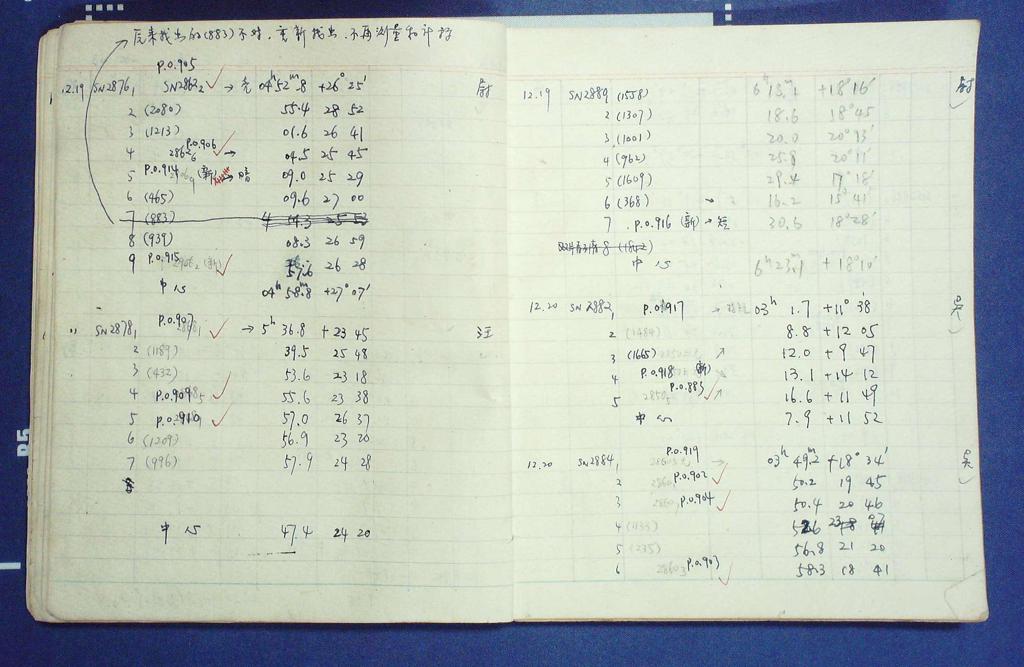 后来找出的(883)不对,重新找出,不再测量和计标
P.O.905
12.19 SN2876₁ SN2862₂ ✓ → 亮 04ʰ52ᵐ.8 +26°25′
2 (2080) 55.4 28 52
3 (1213) 01.6 26 41
P.O.906
4 2862₆ ✓ → 04.5 25 45
P.O.914
5 (新) → 暗 09.0 25 29
6 (465) 09.6 27 00
7 (883) 25 53
8 (939) 08.3 26 59
P.O.915
9 (新) ✓ 57.6 26 28
中心 04ʰ58ᵐ.8 +27°07′
P.O.907
〃 SN2878₁ ✓ → 5ʰ 36.8 +23 45 汪
2 (1189) 39.5 25 48
3 (432) 53.6 23 18
4 P.O.909 ✓ 55.6 23 38
5 P.O.910 ✓ 57.0 26 37
6 (1209) 56.9 23 20
7 (996) 57.9 24 28
8
中心 47.4 24 20
12.19 SN2889 (1558) 6ʰ 13ᵐ.1 +18°16′
2 (1307) 18.6 18°45
3 (1001) 20.0 20°13′
4 (962) 25.8 20°11′
5 (1609) 29.4 17°18′
6 (368) → 16.2 15°41′
7 P.O.916 (新) → 短 30.6 18°28′
8 (1842)
中心 6ʰ23ᵐ.1 +18°10′
12.20 SN2882₁ P.O.917 → 03ʰ 1.7 +11° 38′ 吴
2 (1484) 8.8 +12 05
3 (1665) ↗ 12.0 +9 47
4 P.O.918 (新) 13.1 +14 12
P.O.883
5 2850₅ ✓ ↗ 16.6 +11 49
中心 7.9 +11 52
P.O.919
12.20 SN2884₁ → 03ʰ 49ᵐ.2 +18° 34′ 吴
P.O.902
2 ✓ 50.2 19 45
P.O.904
3 ✓ 50.4 20 46
4 (1133)
5 (235) 56.8 21 20
P.O.903
6 2860₃ ✓ 58.3 18 41